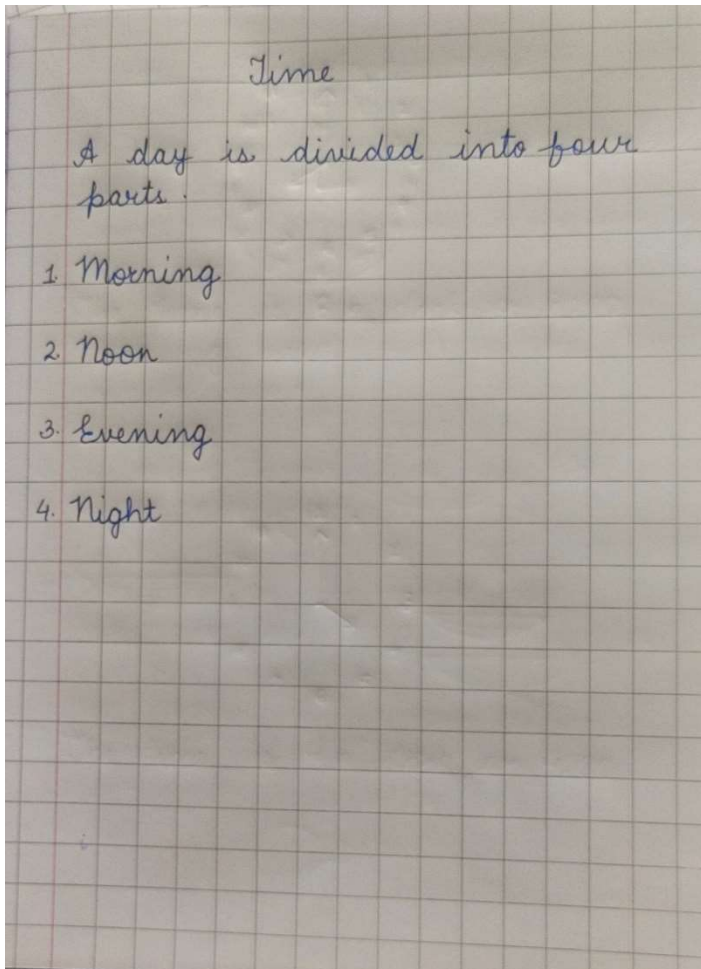 Time
A day is divided into four
parts.
1. Morning
2. Noon
3. Evening
4. Night